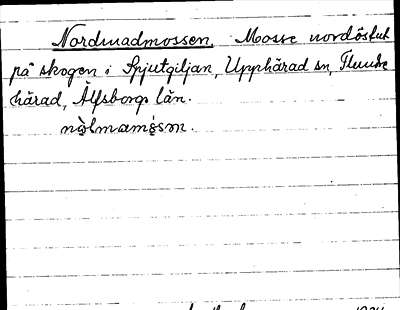 Nordmadmossen. Mosse nordöstut
på skogen i Spjutgiljan, Upphärad sn, Flundre
härad, Älfsborgs län.
nọ̀lmamọ̀sɔn.